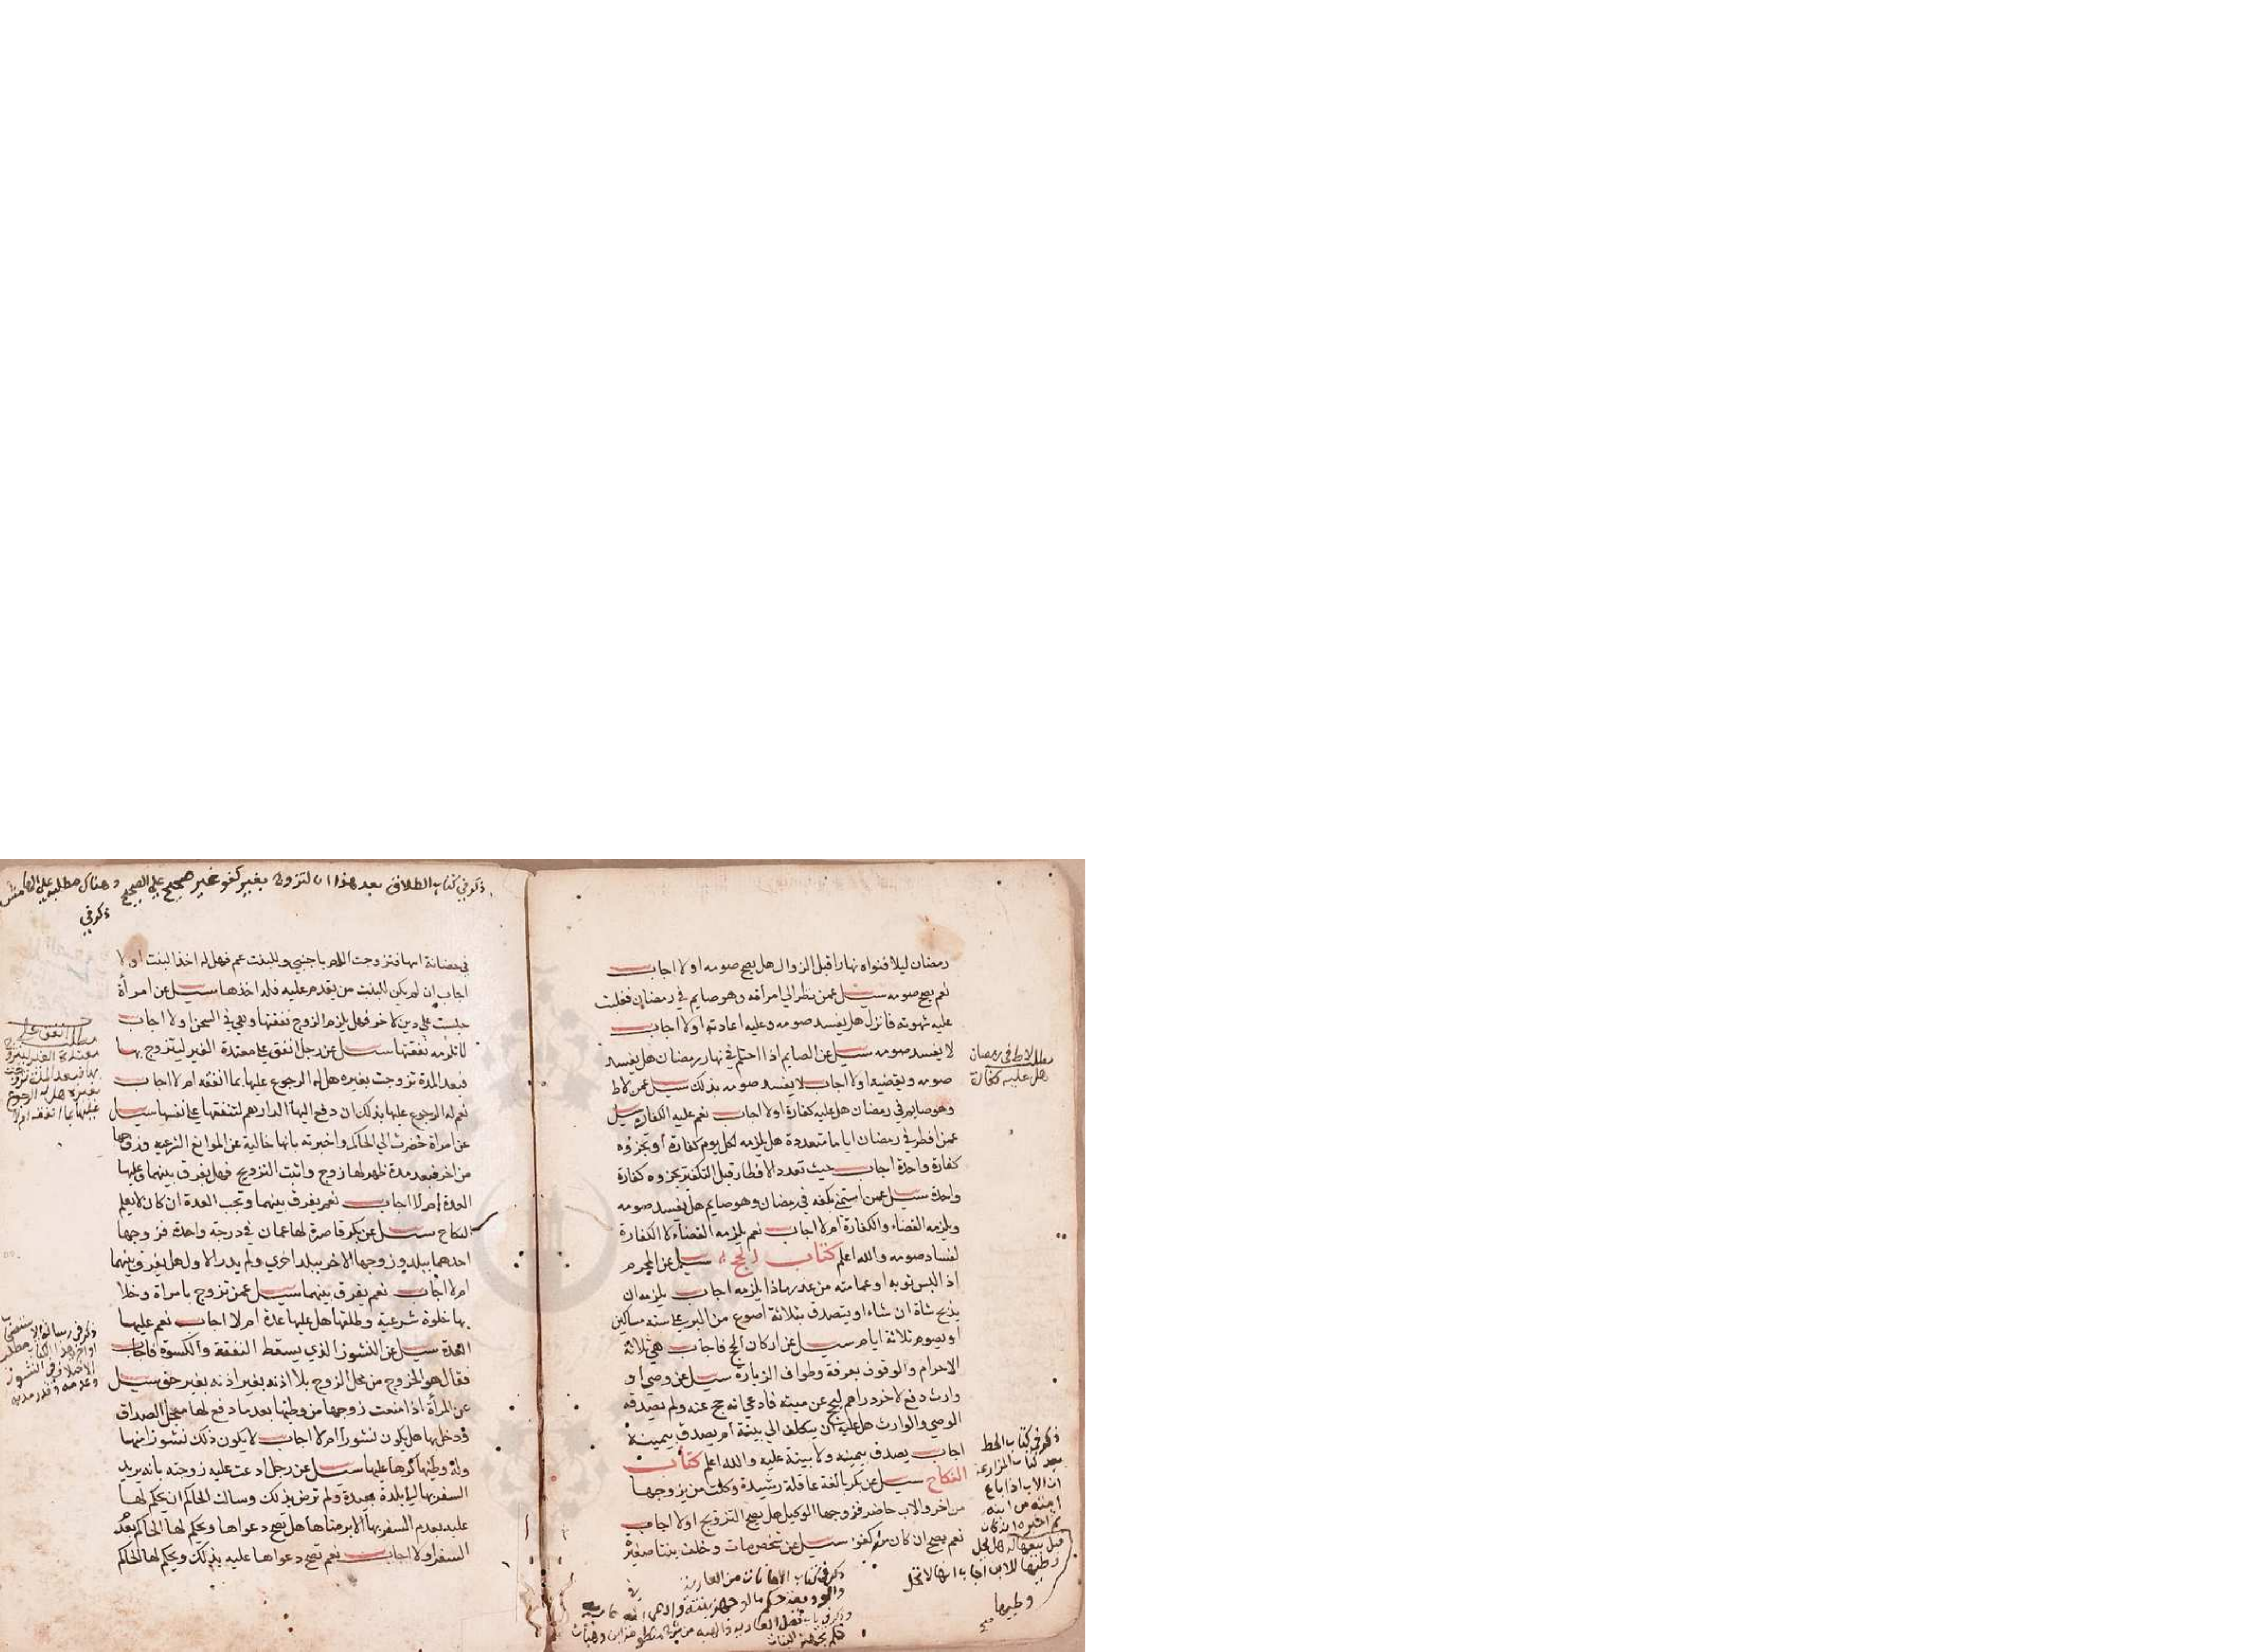 رمضان ليلا فنواه نهارا قبل الزوال هل يصح صومه اولا اجاب
نعم يصح صومه سيل عمن نظر الي امراته وهو صايم في رمضان فغلبت
عليه شهوته فانزل هل يفسد صومه وعليه اعادته اولا اجاب
لا يفسد صومه سيل عن الصايم اذا احتلم في نهار رمضان هل يفسد
صومه ويقضيه اولا اجاب لا يفسد صومه بذلك سيل عمن لاط
وهو صايم في رمضان هل عليه كفارة اولا اجاب نعم عليه الكفارة سيل
عمن افطر في رمضان اياما متعددة هل يلزمه لكل يوم كفارة او تجزوه
كفارة واحدة اجاب حيث تعدد الافطار قبل التكفير تجزوه كفارة
واحدة سيل عمن استمني بكفه في رمضان وهو صايم هل يفسد صومه
ويلزمه القضاء والكفارة ام لا اجاب نعم يلزمه القضاء لا الكفارة
لفساد صومه والله اعلم كتاب الحج سيل عن المحرم
اذا لبس ثوبه او عمامته من عذر ماذا يلزمه اجاب يلزمه ان
يذبح شاة ان شاء او يتصدق بثلاثة اصوع من البر علي ستة مساكين
او يصوم ثلاثة ايام سيل عن اركان الحج فاجاب هي ثلاثة
الاحرام والوقوف بعرفة وطواف الزيارة سيل عن وصي او
وارث دفع لاخر دراهم ليحج عن ميته فادعي انه حج عنه ولم يصدقه
الوصي والوارث هل عليه ان يتكلف الي بينة ام يصدق بيمينه
اجاب يصدق بيمينه ولا بينة عليه والله اعلم كتاب
النكاح سيل عن بكر بالغة عاقلة رشيدة وكلت من يزوجها
من اخر والاب حاضر فزوجها الوكيل هل يصح التزويج اولا اجاب
نعم يصح ان كان من كفو سيل عن شخص مات وخلف بنتا صغيرة
مطلب لاط في رمضان
هل عليه كفارة
ذكر في كتاب الحظ
بعد كتاب المزارعة
ان الاب اذا باع
امته من ابنه
ثم اخبره انه كان
قبل بيعها له هل يحل
وطيها للابن اجاب انها لا تحل
وطيها
صح
ذكر في كتاب الامانات من العارية
والوديعة حكم ما لو جهز بنته وادعي انه عارية
ذكر في كتاب الطلاق بعد هذا ان التزوج بغير كفو غير صحيح علي الصحيح وهناك مطلب علي الهامش
ذكر في
في حضانة امها فتزوجت الام باجنبي وللبنت عم فهل له اخذ البنت اولا
اجاب ان لم يكن للبنت من يقدم عليه فله اخذها سيل عن امراة
حبست علي دين لاخر فهل يلزم الزوج نفقتها وهي في السجن اولا اجاب
لا تلزمه نفقتها سيل عن رجل انفق علي معتدة الغير ليتزوج بها
فبعد المدة تزوجت بغيره هل له الرجوع عليها بما انفقه ام لا اجاب
نعم له الرجوع عليها بذلك ان دفع اليها الدراهم لتنفقها علي نفسها سيل
عن امراة حضرت الي الحاكم واخبرته بانها خالية عن الموانع الشرعيه وزوجها
من اخر فبعد مدة ظهر لها زوج واثبت التزويج فهل يفرق بينهما وعليها
العدة ام لا اجاب نعم يفرق بينهما وتجب العدة ان كان لا يعلم
النكاح سيل عن بكر قاصرة لها عمان في درجة واحدة فزوجها
احدهما ببلد وزوجها الاخر ببلد اخري ولم يدر الاول هل يفرق بينهما
ام لا اجاب نعم يفرق بينهما سيل عمن تزوج بامراة وخلا
بها خلوة شرعية وطلقها هل عليها عدة ام لا اجاب نعم عليها
العدة سيل عن النشوز الذي يسقط النفقة والكسوة فاجاب
فقال هو الخروج من محل الزوج بلا اذنه بغير اذنه بغير حق سيل
عن المرأة اذا منعت زوجها من وطيها بعد ما دفع لها معجل الصداق
ودخل بها هل يكون نشوزا ام لا اجاب لا يكون ذلك نشوزا منها
وله وطيها كرها عليها سيل عن رجل ادعت عليه زوجته بانه يريد
السفر بها الي بلدة بعيدة ولم ترض بذلك وسالت الحاكم ان يحكم لها
عليه بعدم السفر بها الا برضاها هل تصح دعواها ويحكم لها الحاكم بعدم
السفر اولا اجاب نعم تصح دعواها عليه بذلك ويحكم لها الحاكم
مطلب انفق علي
معتدة الغير ليتزوج
بها فبعد المدة تزوجت
بغيره هل له الرجوع
عليها بما انفقه ام لا